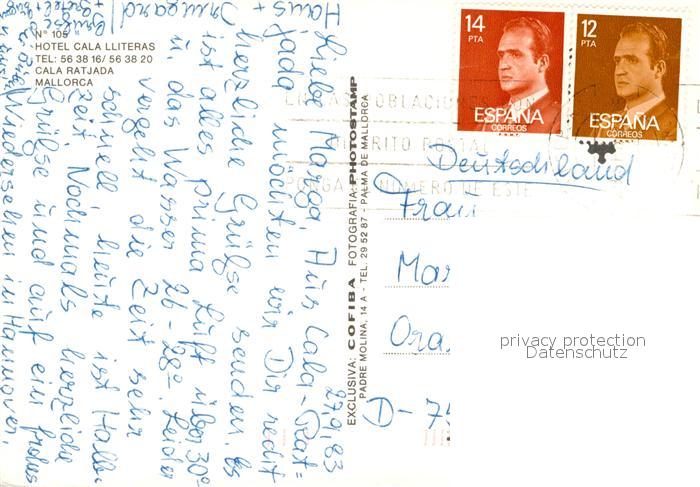 Nº 105
HOTEL CALA LLITERAS
TEL: 56 38 16/ 56 38 20
CALA RATJADA
MALLORCA
27.9.83
Liebe Marga, Aus Cala-Rat=
jada möchten wir Dir recht
herzliche Grüße senden. Es
ist alles prima Luft über 30°
u. das Wasser 26-28°. Leider
vergeht die Zeit sehr
schnell heute ist Halb-
zeit. Nochmals herzliche
Grüße und auf ein frohes
Wiedersehen in Hannover.
Hans +
Irmgard
EXCLUSIVA: COFIBA FOTOGRAFIA: PHOTOSTAMP
PADRE MOLINA, 14 A - TEL. 29 52 87 - PALMA DE MALLORCA
14
PTA
ESPAÑA
CORREOS
12
PTA
ESPAÑA
CORREOS
DISTRITO POSTAL
PONGA NUMERO DE ESTE
Deutschland
Frau
Mar
Ora
D-75
privacy protection
Datenschutz